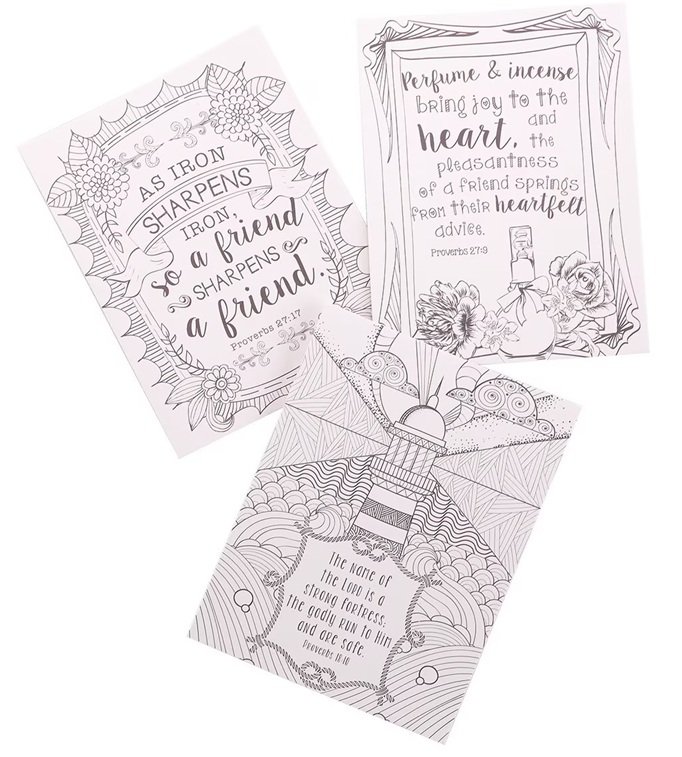 AS IRON
SHARPENS
IRON,
so a friend
SHARPENS
a friend.
Proverbs 27:17
Perfume & incense
bring joy to the
heart, and
the
pleasantness
of a friend springs
from their heartfelt
advice.
Proverbs 27:9
THE NAME OF
THE LORD IS A
STRONG FORTRESS;
THE GODLY RUN TO HIM
AND ARE SAFE.
Proverbs 18:10